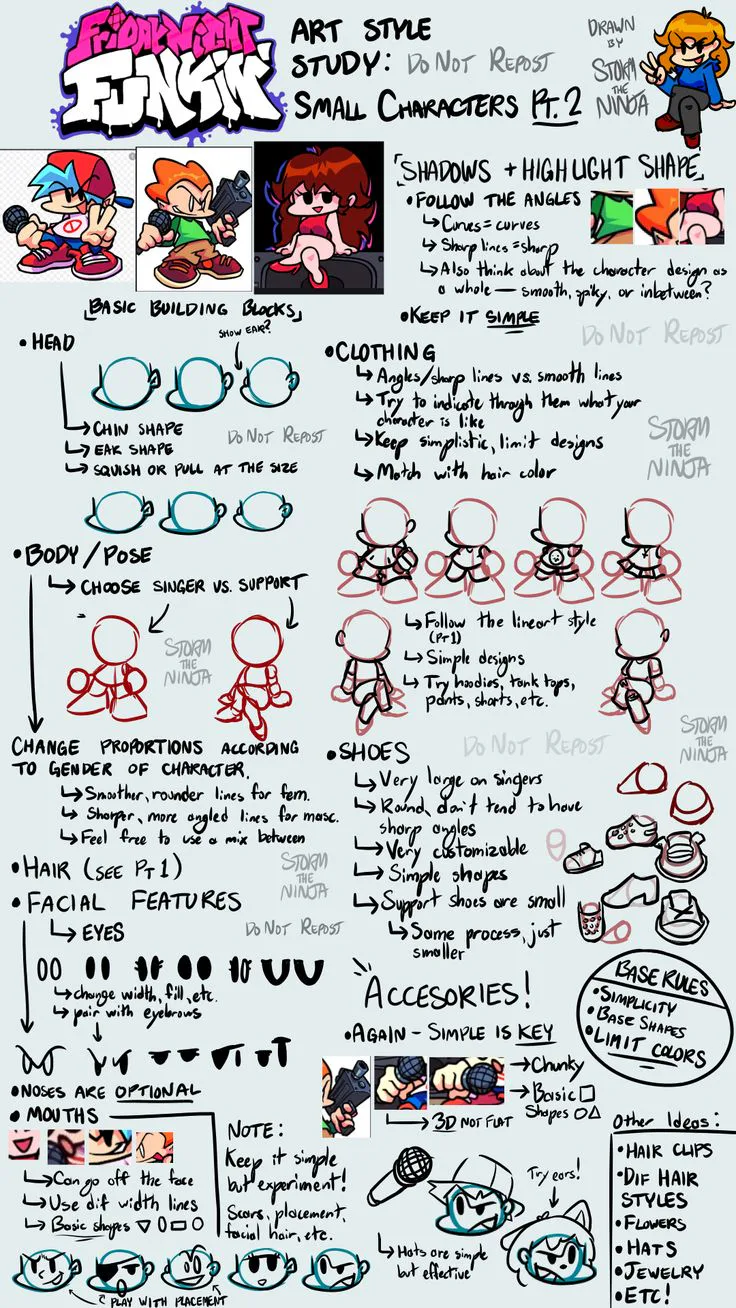 FRiDAY NiGHT
FUNKIN'
ART STYLE
STUDY: DO NOT REPOST
SMALL CHARACTERS PT. 2
DRAWN
BY
STORM
THE
NINJA
SHADOWS + HIGHLIGHT SHAPE
• FOLLOW THE ANGLES
↳ Curves = curves
↳ Sharp lines = sharp
↳ Also think about the character design as
a whole — smooth, spiky, or inbetween?
• KEEP IT SIMPLE
DO NOT REPOST
BASIC BUILDING BLOCKS
• HEAD
SHOW EAR?
→ CHIN SHAPE
→ EAR SHAPE
→ SQUISH OR PULL AT THE SIZE
DO NOT REPOST
• BODY / POSE
↳ CHOOSE SINGER VS. SUPPORT
STORM
THE
NINJA
CHANGE PROPORTIONS ACCORDING
TO GENDER OF CHARACTER.
↳ Smoother, rounder lines for fem.
↳ Sharper, more angled lines for masc.
↳ Feel free to use a mix between
• HAIR (SEE PT 1)
STORM
THE
NINJA
• FACIAL FEATURES
DO NOT REPOST
↳ EYES
↳ change width, fill, etc.
↳ pair with eyebrows
• NOSES ARE OPTIONAL
• MOUTHS
↳ Can go off the face
↳ Use dif width lines
↳ Basic shapes
NOTE:
Keep it simple
but experiment!
Scars, placement,
facial hair, etc.
PLAY WITH PLACEMENT
• CLOTHING
↳ Angles/sharp lines vs. smooth lines
↳ Try to indicate through them what your
character is like
↳ Keep simplistic, limit designs
↳ Match with hair color
STORM
THE
NINJA
↳ Follow the lineart style
(PT 1)
↳ Simple designs
↳ Try hoodies, tank tops,
pants, shorts, etc.
STORM
THE
NINJA
• SHOES
DO NOT REPOST
↳ Very large on singers
↳ Round, don't tend to have
sharp angles
↳ Very customizable
↳ Simple shapes
↳ Support shoes are small
↳ Same process, just
smaller
BASE RULES
• SIMPLICITY
• BASE SHAPES
• LIMIT COLORS
ACCESORIES!
• AGAIN - SIMPLE IS KEY
→ Chunky
→ Basic
Shapes
↳ 3D NOT FLAT
Try ears!
↳ Hats are simple
but effective
Other Ideas:
• HAIR CLIPS
• DIF HAIR
STYLES
• FLOWERS
• HATS
• JEWELRY
• ETC!